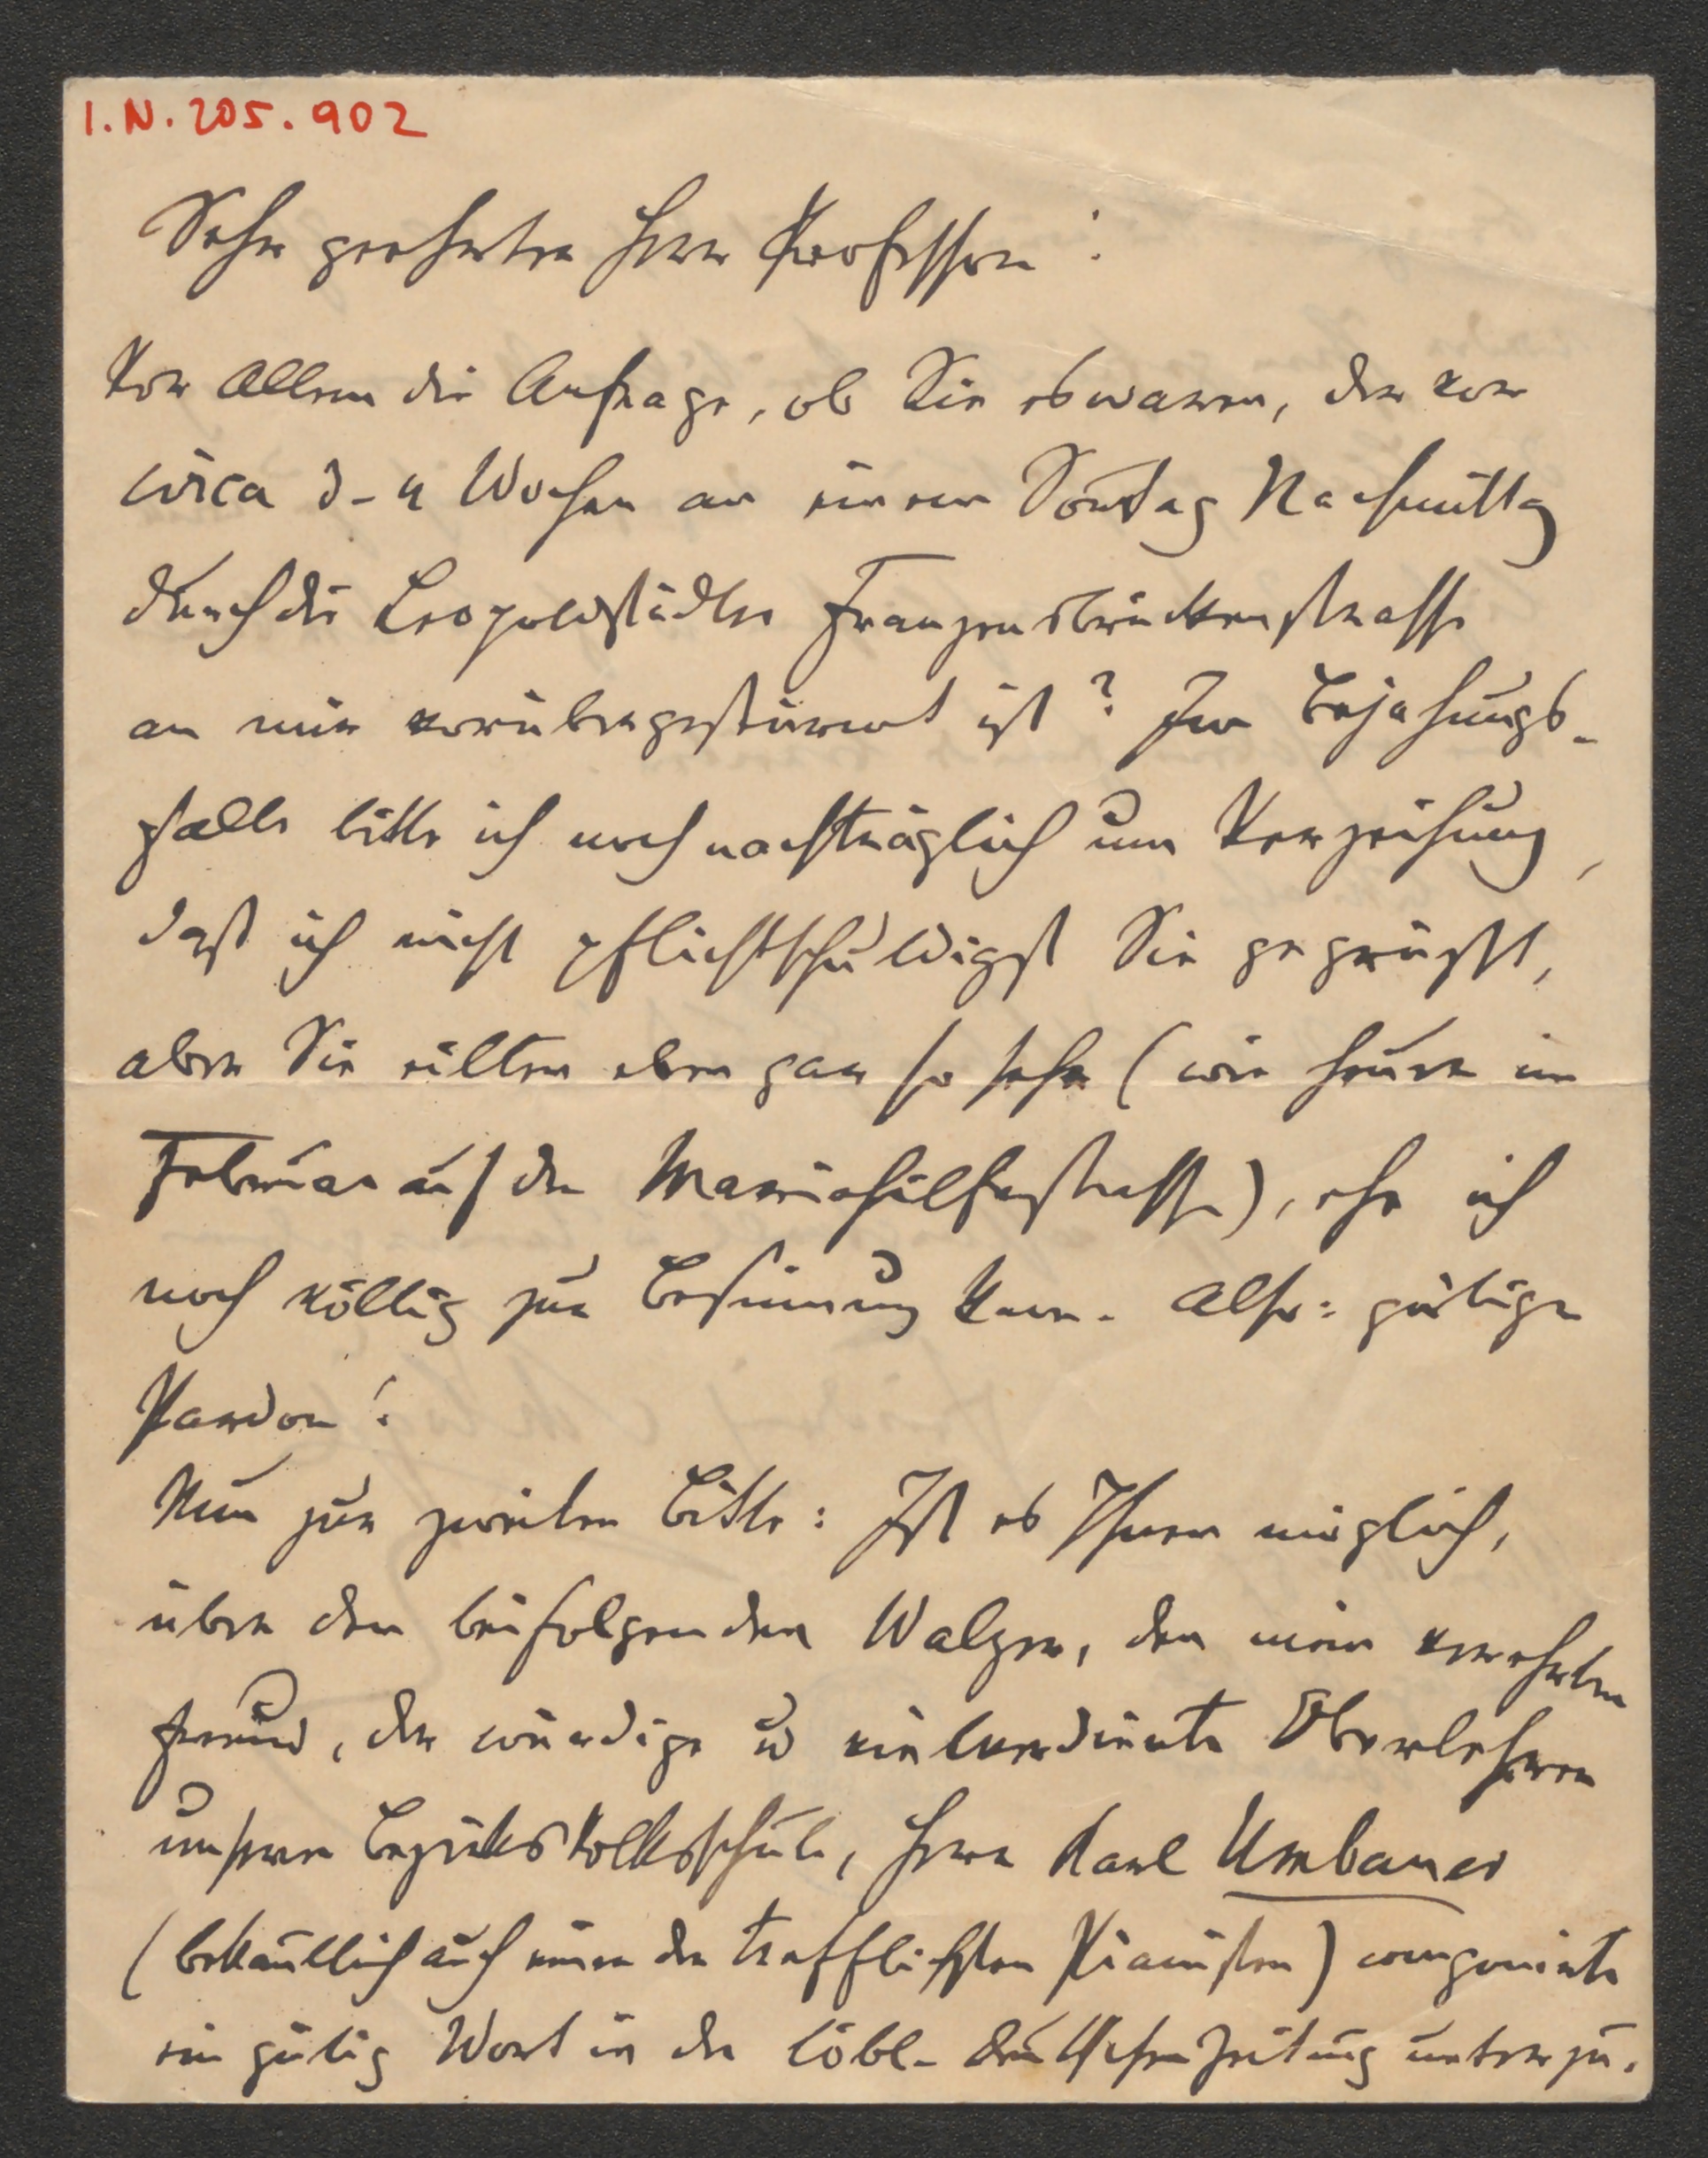 I.N. 205.902
Sehr geehrter Herr Professor!
Vor Allem die Anfrage, ob Sie es waren, der vor
circa 3-4 Wochen an einem Sontag Nachmittag
durch die Leopoldstädter Franzensbrückenstrasse
an mir vorübergestürmt ist? Im Bejahungs-
falle bitte ich noch nachträglich um Verzeihung,
daß ich nicht pflichtschuldigst Sie gegrüßt,
aber Sie eilten eben gar so sehr (wie heuer im
Februar auf der Mariahilferstrasse), ehe ich
noch völlig zur Besinnung kam. Also: gütigen
Pardon!
Nun zur zweiten Bitte: Ist es Ihnen möglich,
über den beifolgenden Walzer, den mein verehrter
Freund, der würdige u vielverdiente Oberlehrer
unserer Bezirksvolksschule, Herr Karl Umbauer
(bekantlich auch einer der trefflichsten Pianisten) componirte
ein gütig Wort in der löbl. Deutschen Zeitung unterzu-